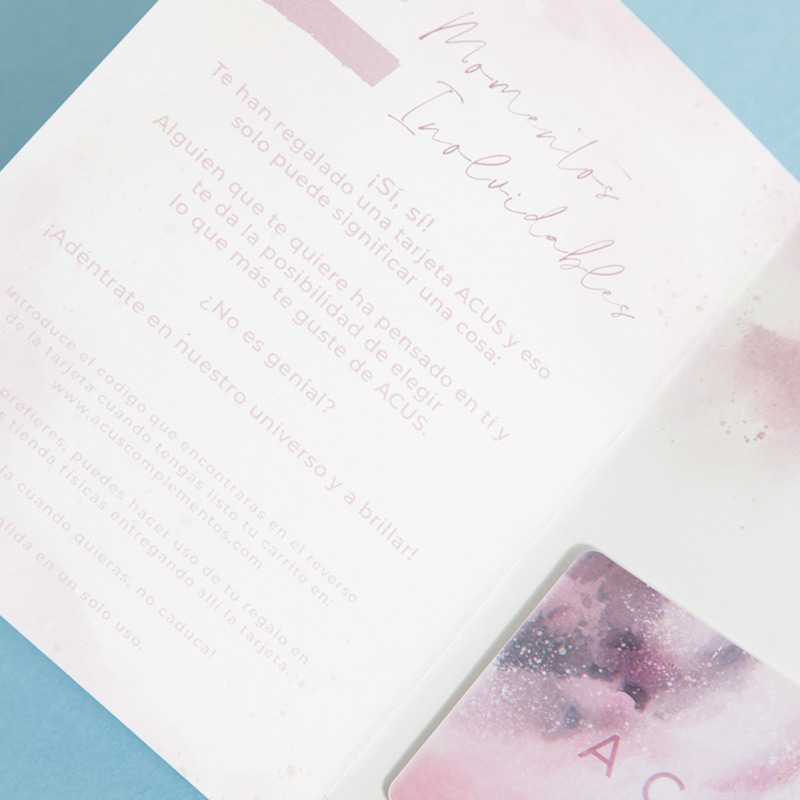 Momentos
Inolvidables
¡Sí, sí!
Te han regalado una tarjeta ACUS y eso
solo puede significar una cosa:
Alguien que te quiere ha pensado en ti y
te da la posibilidad de elegir
lo que más te guste de ACUS.
¿No es genial?
¡Adéntrate en nuestro universo y a brillar!
Introduce el codigo que encontraras en el reverso
de la tarjeta cuando tengas listo tu carrito en:
www.acuscomplementos.com
prefieres, puedes hacer uso de tu regalo en
tienda físicas entregando allí la tarjeta.
la cuando quieras, no caduca!
en un solo uso.
AC